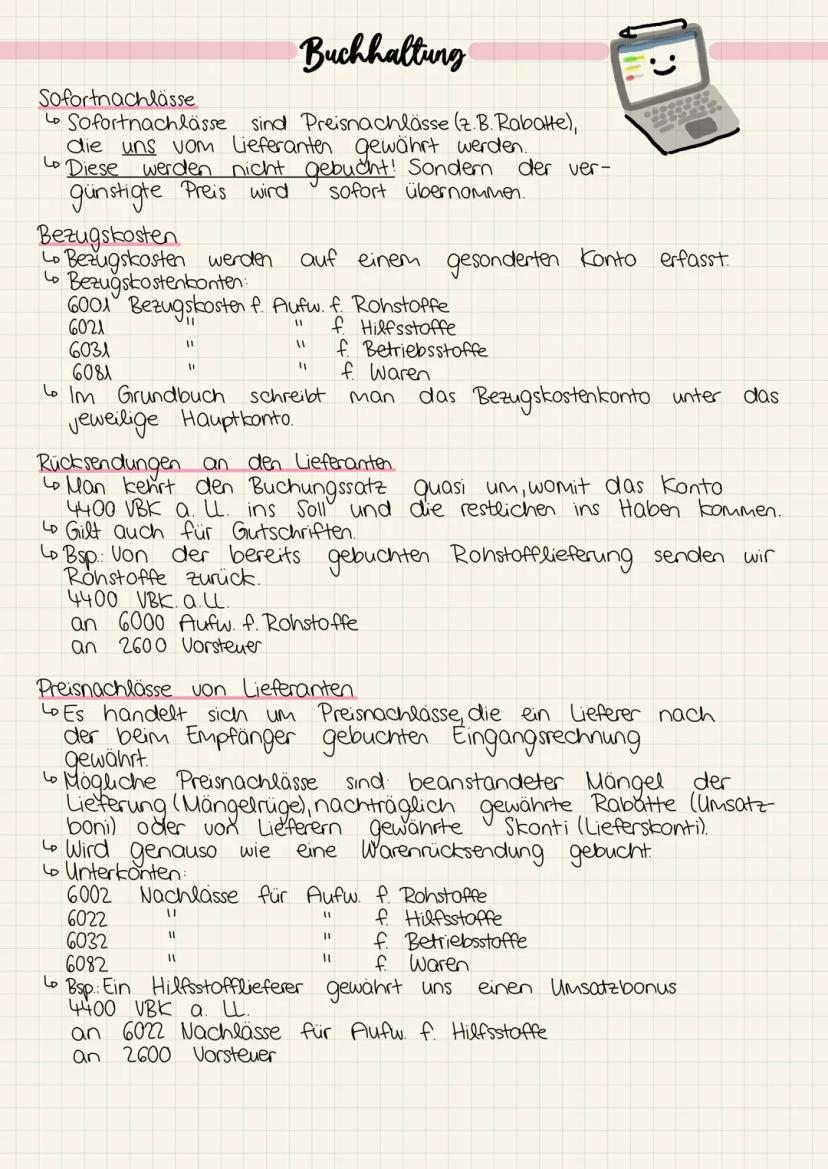 Buchhaltung
Sofortnachlässe
↳ Sofortnachlässe sind Preisnachlässe (z.B. Rabatte),
die uns vom Lieferanten gewährt werden.
↳ Diese werden nicht gebucht! Sondern der ver-
günstigte Preis wird sofort übernommen.
Bezugskosten
↳ Bezugskosten werden auf einem gesonderten Konto erfasst.
↳ Bezugskostenkonten:
6001 Bezugskosten f. Aufw. f. Rohstoffe
6021 " " f. Hilfsstoffe
6031 " " f. Betriebsstoffe
6081 " " f. Waren
↳ Im Grundbuch schreibt man das Bezugskostenkonto unter das
jeweilige Hauptkonto.
Rücksendungen an den Lieferanten
↳ Man kehrt den Buchungssatz quasi um, womit das Konto
4400 VBK a. LL. ins Soll und die restlichen ins Haben kommen.
↳ Gilt auch für Gutschriften.
↳ Bsp.: Von der bereits gebuchten Rohstofflieferung senden wir
Rohstoffe zurück.
4400 VBK. a. LL.
an 6000 Aufw. f. Rohstoffe
an 2600 Vorsteuer
Preisnachlässe von Lieferanten
↳ Es handelt sich um Preisnachlässe, die ein Lieferer nach
der beim Empfänger gebuchten Eingangsrechnung
gewährt.
↳ Mögliche Preisnachlässe sind: beanstandeter Mängel der
Lieferung (Mängelrüge), nachträglich gewährte Rabatte (Umsatz-
boni) oder von Lieferern gewährte Skonti (Lieferskonti).
↳ Wird genauso wie eine Warenrücksendung gebucht.
↳ Unterkonten:
6002 Nachlässe für Aufw. f. Rohstoffe
6022 " " f. Hilfsstoffe
6032 " " f. Betriebsstoffe
6082 " " f. Waren
↳ Bsp.: Ein Hilfsstofflieferer gewährt uns einen Umsatzbonus
4400 VBK a. LL.
an 6022 Nachlässe für Aufw. f. Hilfsstoffe
an 2600 Vorsteuer